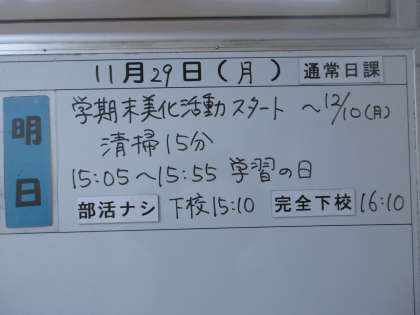 11月29日(月) 通常日課
明日
学期末美化活動スタート ～12/10(月)
清掃15分
15:05～15:55 学習の日
部活ナシ 下校15:10 完全下校 16:10